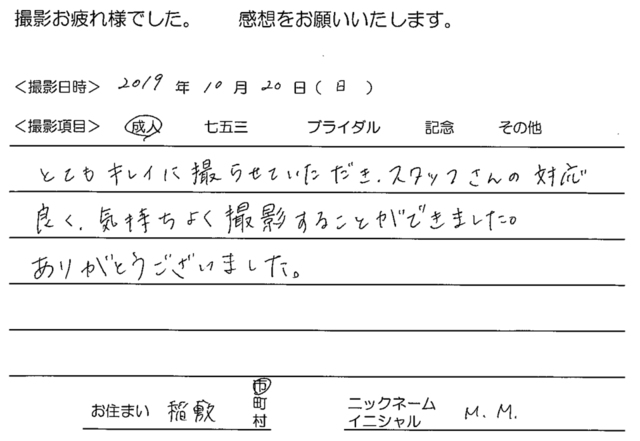 撮影お疲れ様でした。 感想をお願いいたします。
＜撮影日時＞ 2019 年 10 月 20 日（ 日 ）
＜撮影項目＞ 成人 七五三 ブライダル 記念 その他
とてもキレイに撮らせていただき、スタッフさんの対応
良く、気持ちよく撮影することができました。
ありがとうございました。
お住まい 稲敷 市 町 村 ニックネーム イニシャル M.M.